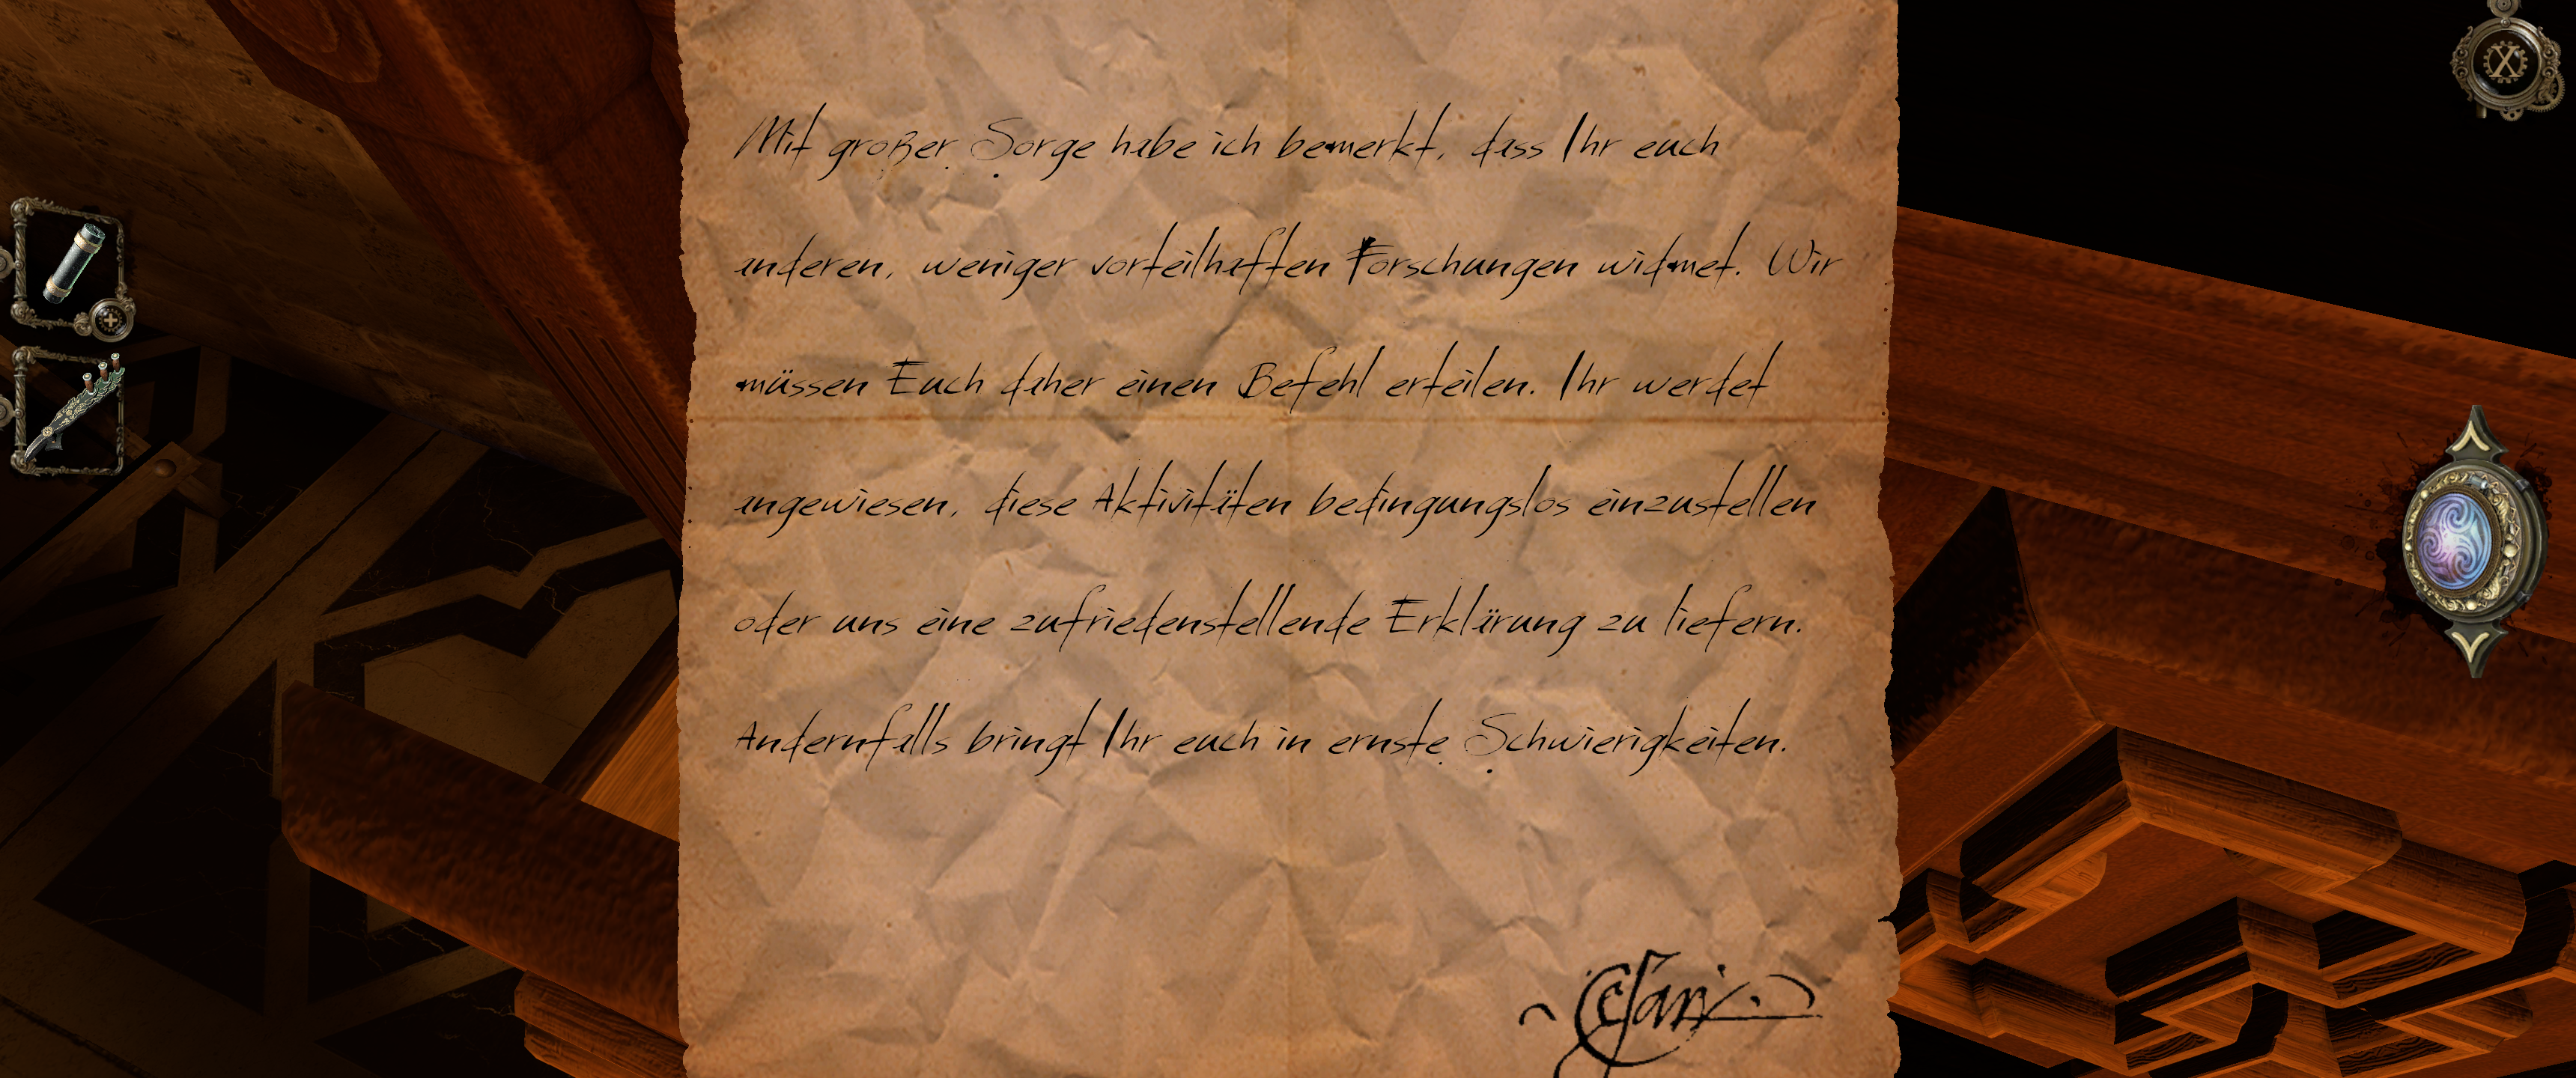 Mit großer Sorge habe ich bemerkt, dass Ihr euch
anderen, weniger vorteilhaften Forschungen widmet. Wir
müssen Euch daher einen Befehl erteilen. Ihr werdet
angewiesen, diese Aktivitäten bedingungslos einzustellen
oder uns eine zufriedenstellende Erklärung zu liefern.
Andernfalls bringt Ihr euch in ernste Schwierigkeiten.